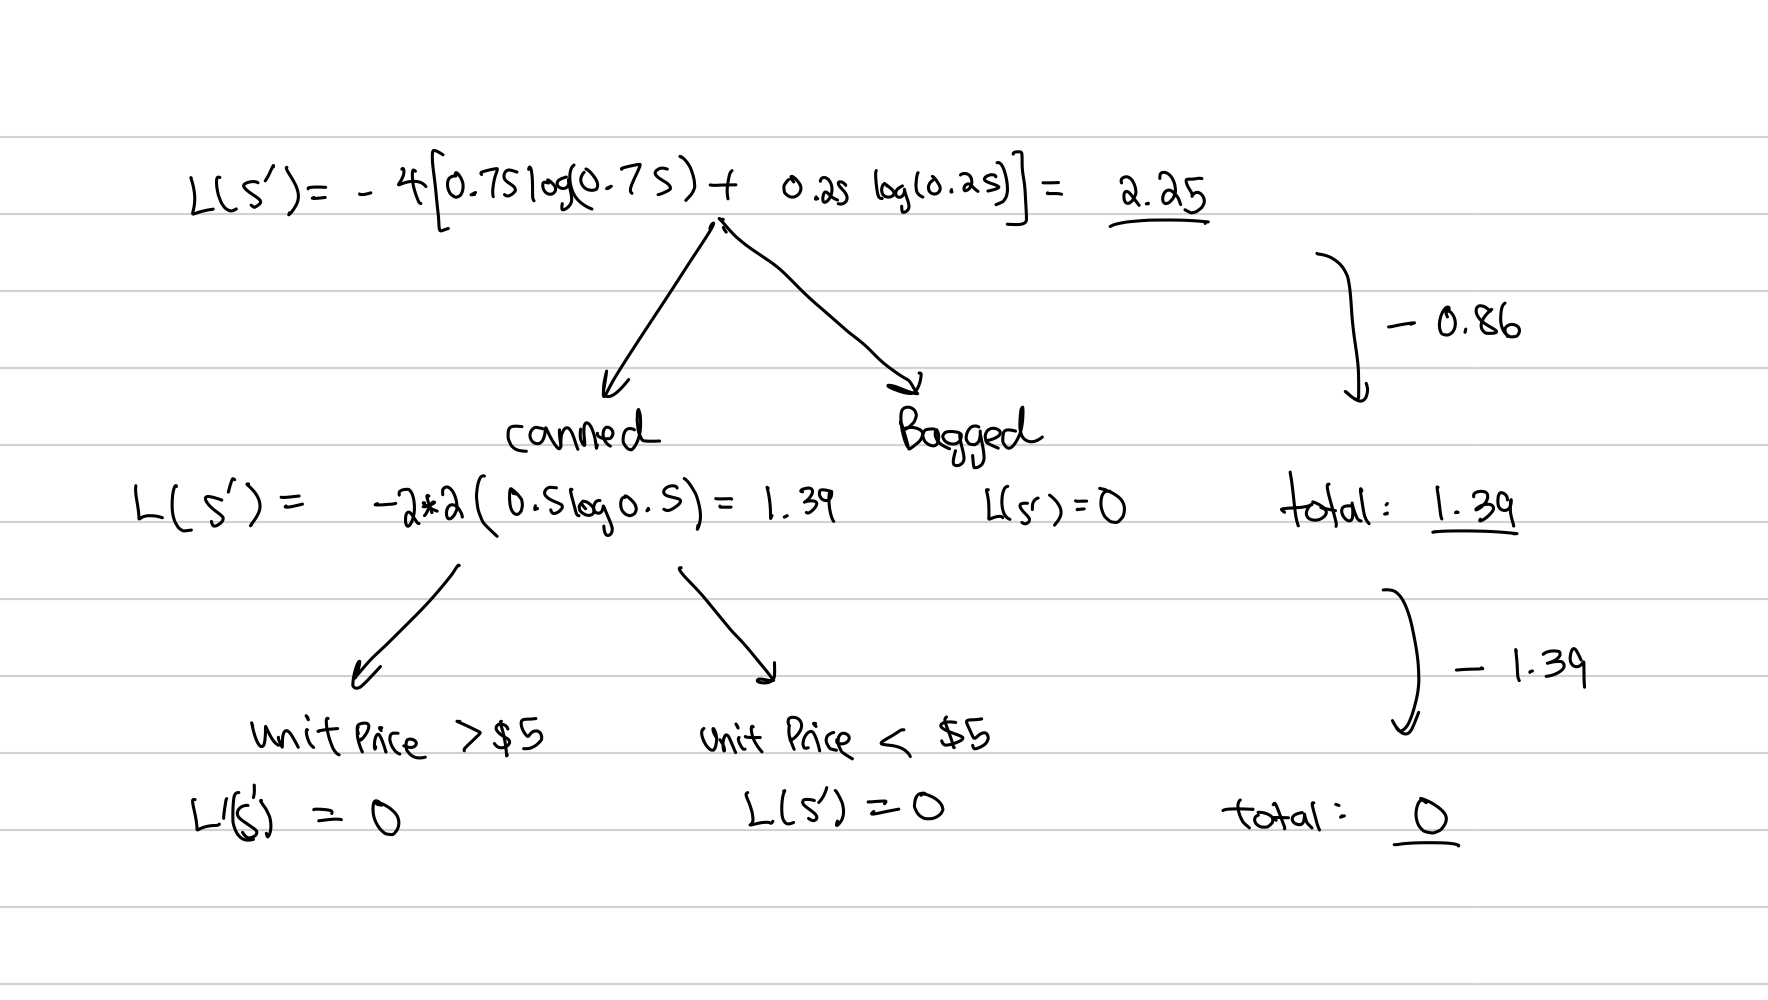 L(S')= - 4[0.75log(0.75)+ 0.25 log(0.25)] = 2.25
- 0.86
canned Bagged
L(S') = -2*2( 0.5log0.5)= 1.39 L(S')=0 total: 1.39
- 1.39
Unit Price >$5 Unit Price < $5
L'(S') = 0 L(S')=0 total: 0